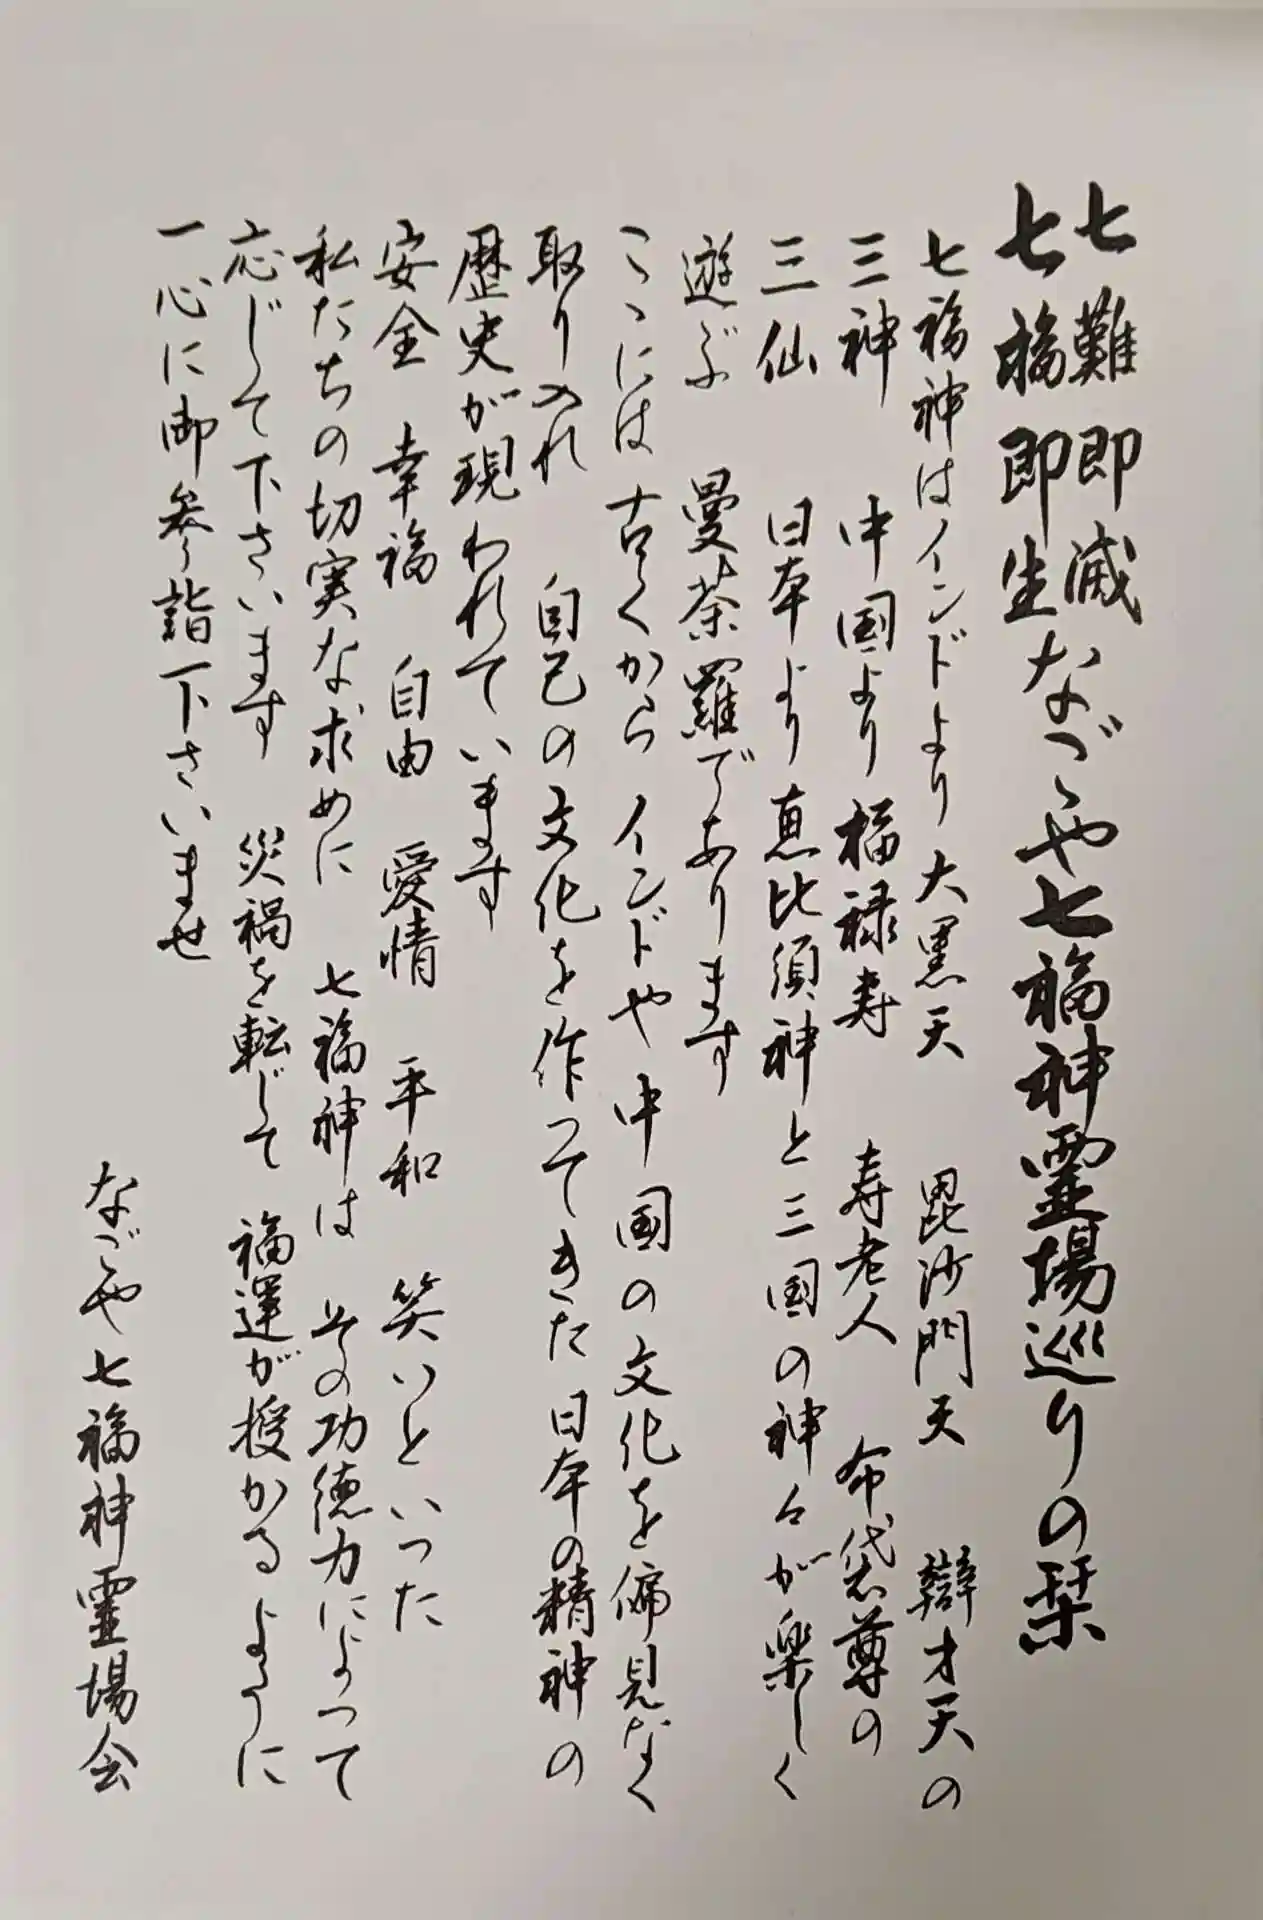 七難即滅
七福即生
なごや七福神霊場巡りの栞
七福神はインドより 大黒天 毘沙門天 辯才天の
三神 中国より 福禄寿 寿老人 布袋尊の
三仙 日本より 恵比須神と三国の神々が楽しく
遊ぶ 曼荼羅であります
こゝには 古くから インドや中国の文化を偏見なく
取り入れ 自己の文化を作ってきた 日本の精神の
歴史が現われています
安全 幸福 自由 愛情 平和 笑いといった
私たちの切実な求めに 七福神は その功徳力によって
応じて下さいます 災禍を転じて 福運が授かるように
一心に御参詣下さいませ
なごや七福神霊場会